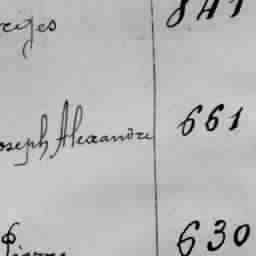 841
oseph Alexandre 661
Pierre 630